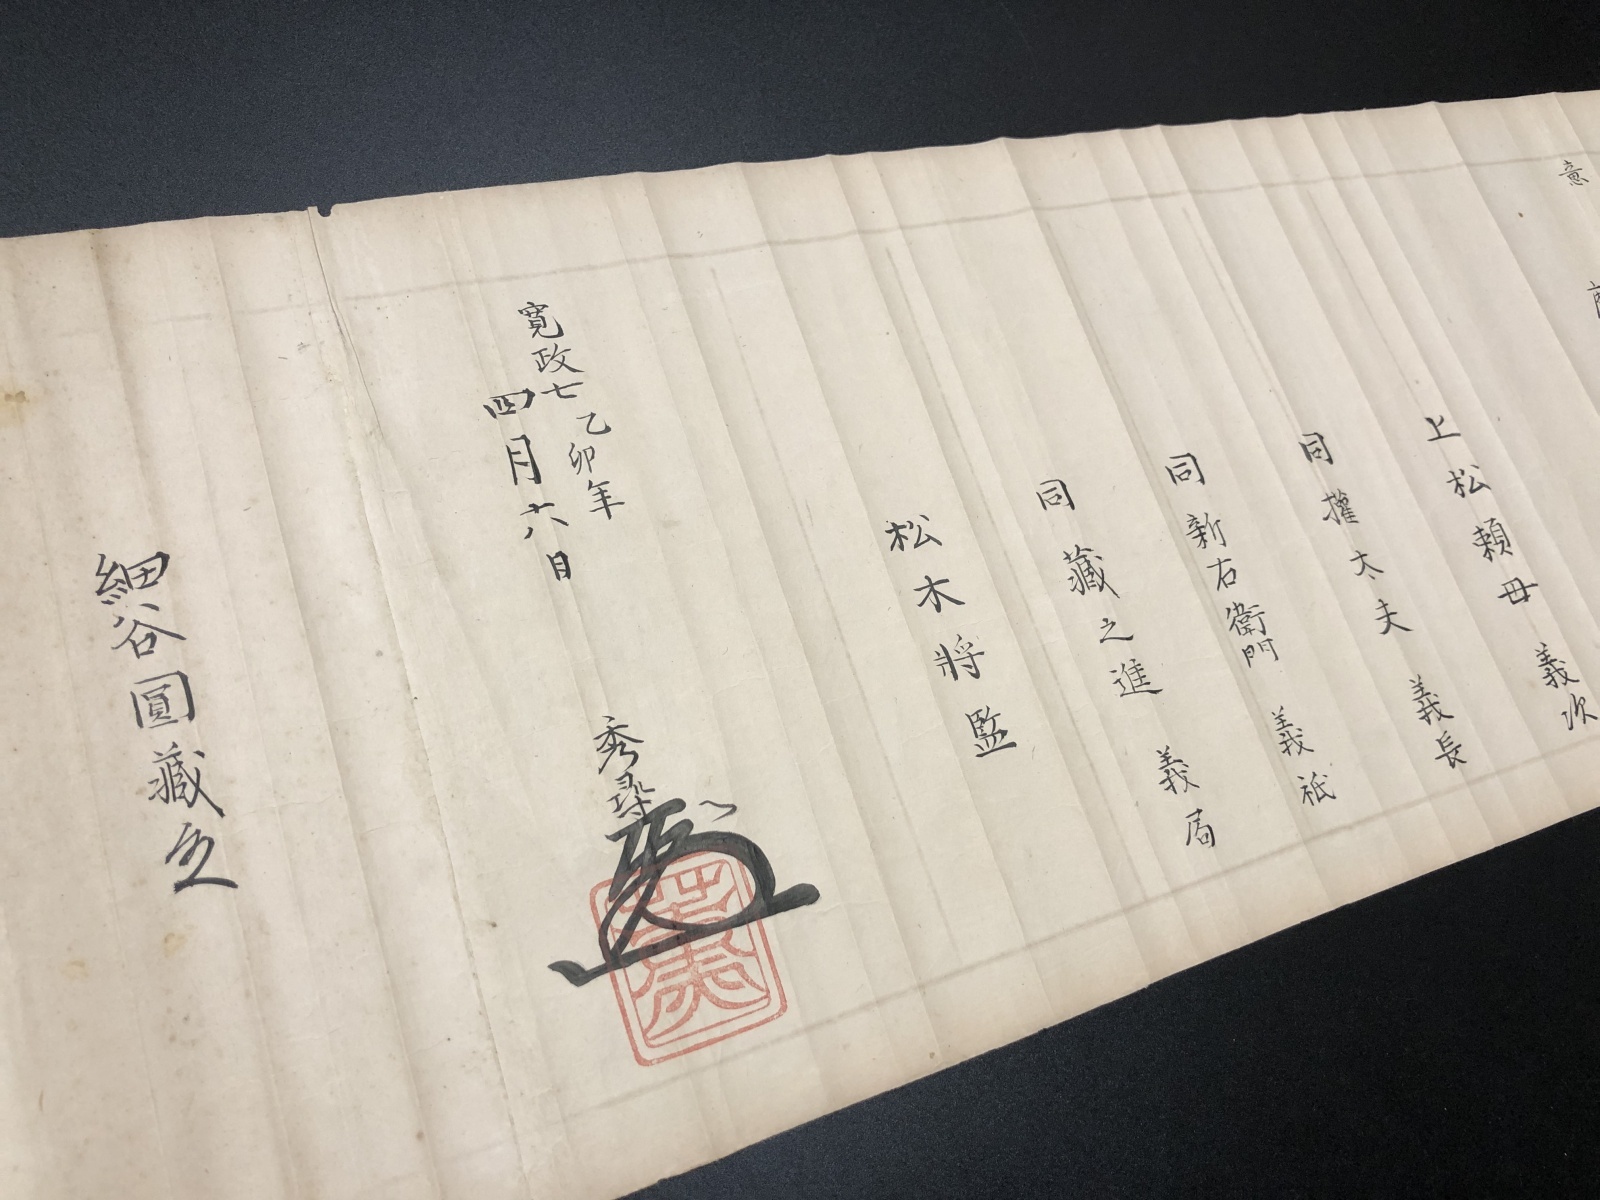 意
上松頼母 義次
同 權太夫 義長
同 新右衛門 義祇
同 藏之進 義局
松木將監
秀
寛政七乙卯年
四月六日
細谷圓藏